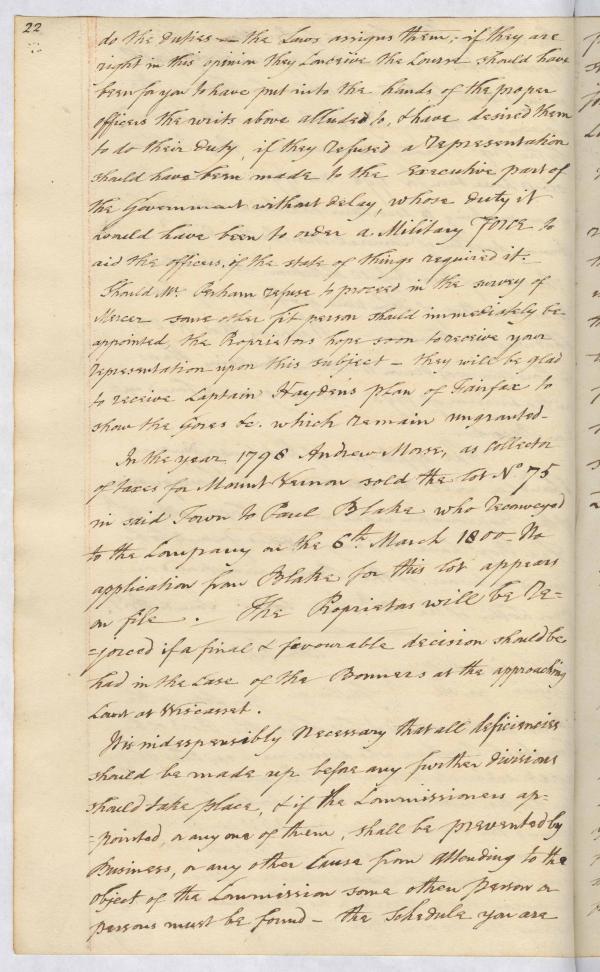 22
do the duties — the Laws assigns them, - if they are
right in this opinion they Conceive the Course should have
been for you to have put into the hands of the proper
officers the writs above alluded to, & have desired them
to do their duty, if they refused a representation
should have been made to the Executive part of
the Government without delay, whose duty it
would have been to order a Military Force to
aid the officers, if the state of things required it.
Should Mr. Perham refuse to proceed in the survey of
Mercer some other fit person should immediately be
appointed, the Proprietors hope soon to receive your
representation upon this subject — they will be glad
to receive Captain Hayden's plan of Fairfax to
show the Gores &c. which remain ungranted -
In the year 1798 Andrew Morse, as Collector
of taxes for Mount Vernon sold the lot No 75
in said Town to Paul Blake who reconveyed
to the Company on the 6th March 1800 - No
application from Blake for this lot appears
on file. The Proprietors will be re=
=joiced if a final & favourable decision should be
had in the Case of the Bonners at the approaching
Court at Wiscasset.
It is indespensibly necessary that all deficiencies
should be made up before any further divisions
should take place, & if the Commissioners ap=
=pointed, or any one of them, shall be prevented by
Business, or any other Cause from attending to the
object of the Commission some other person or
persons must be found - the schedule you are